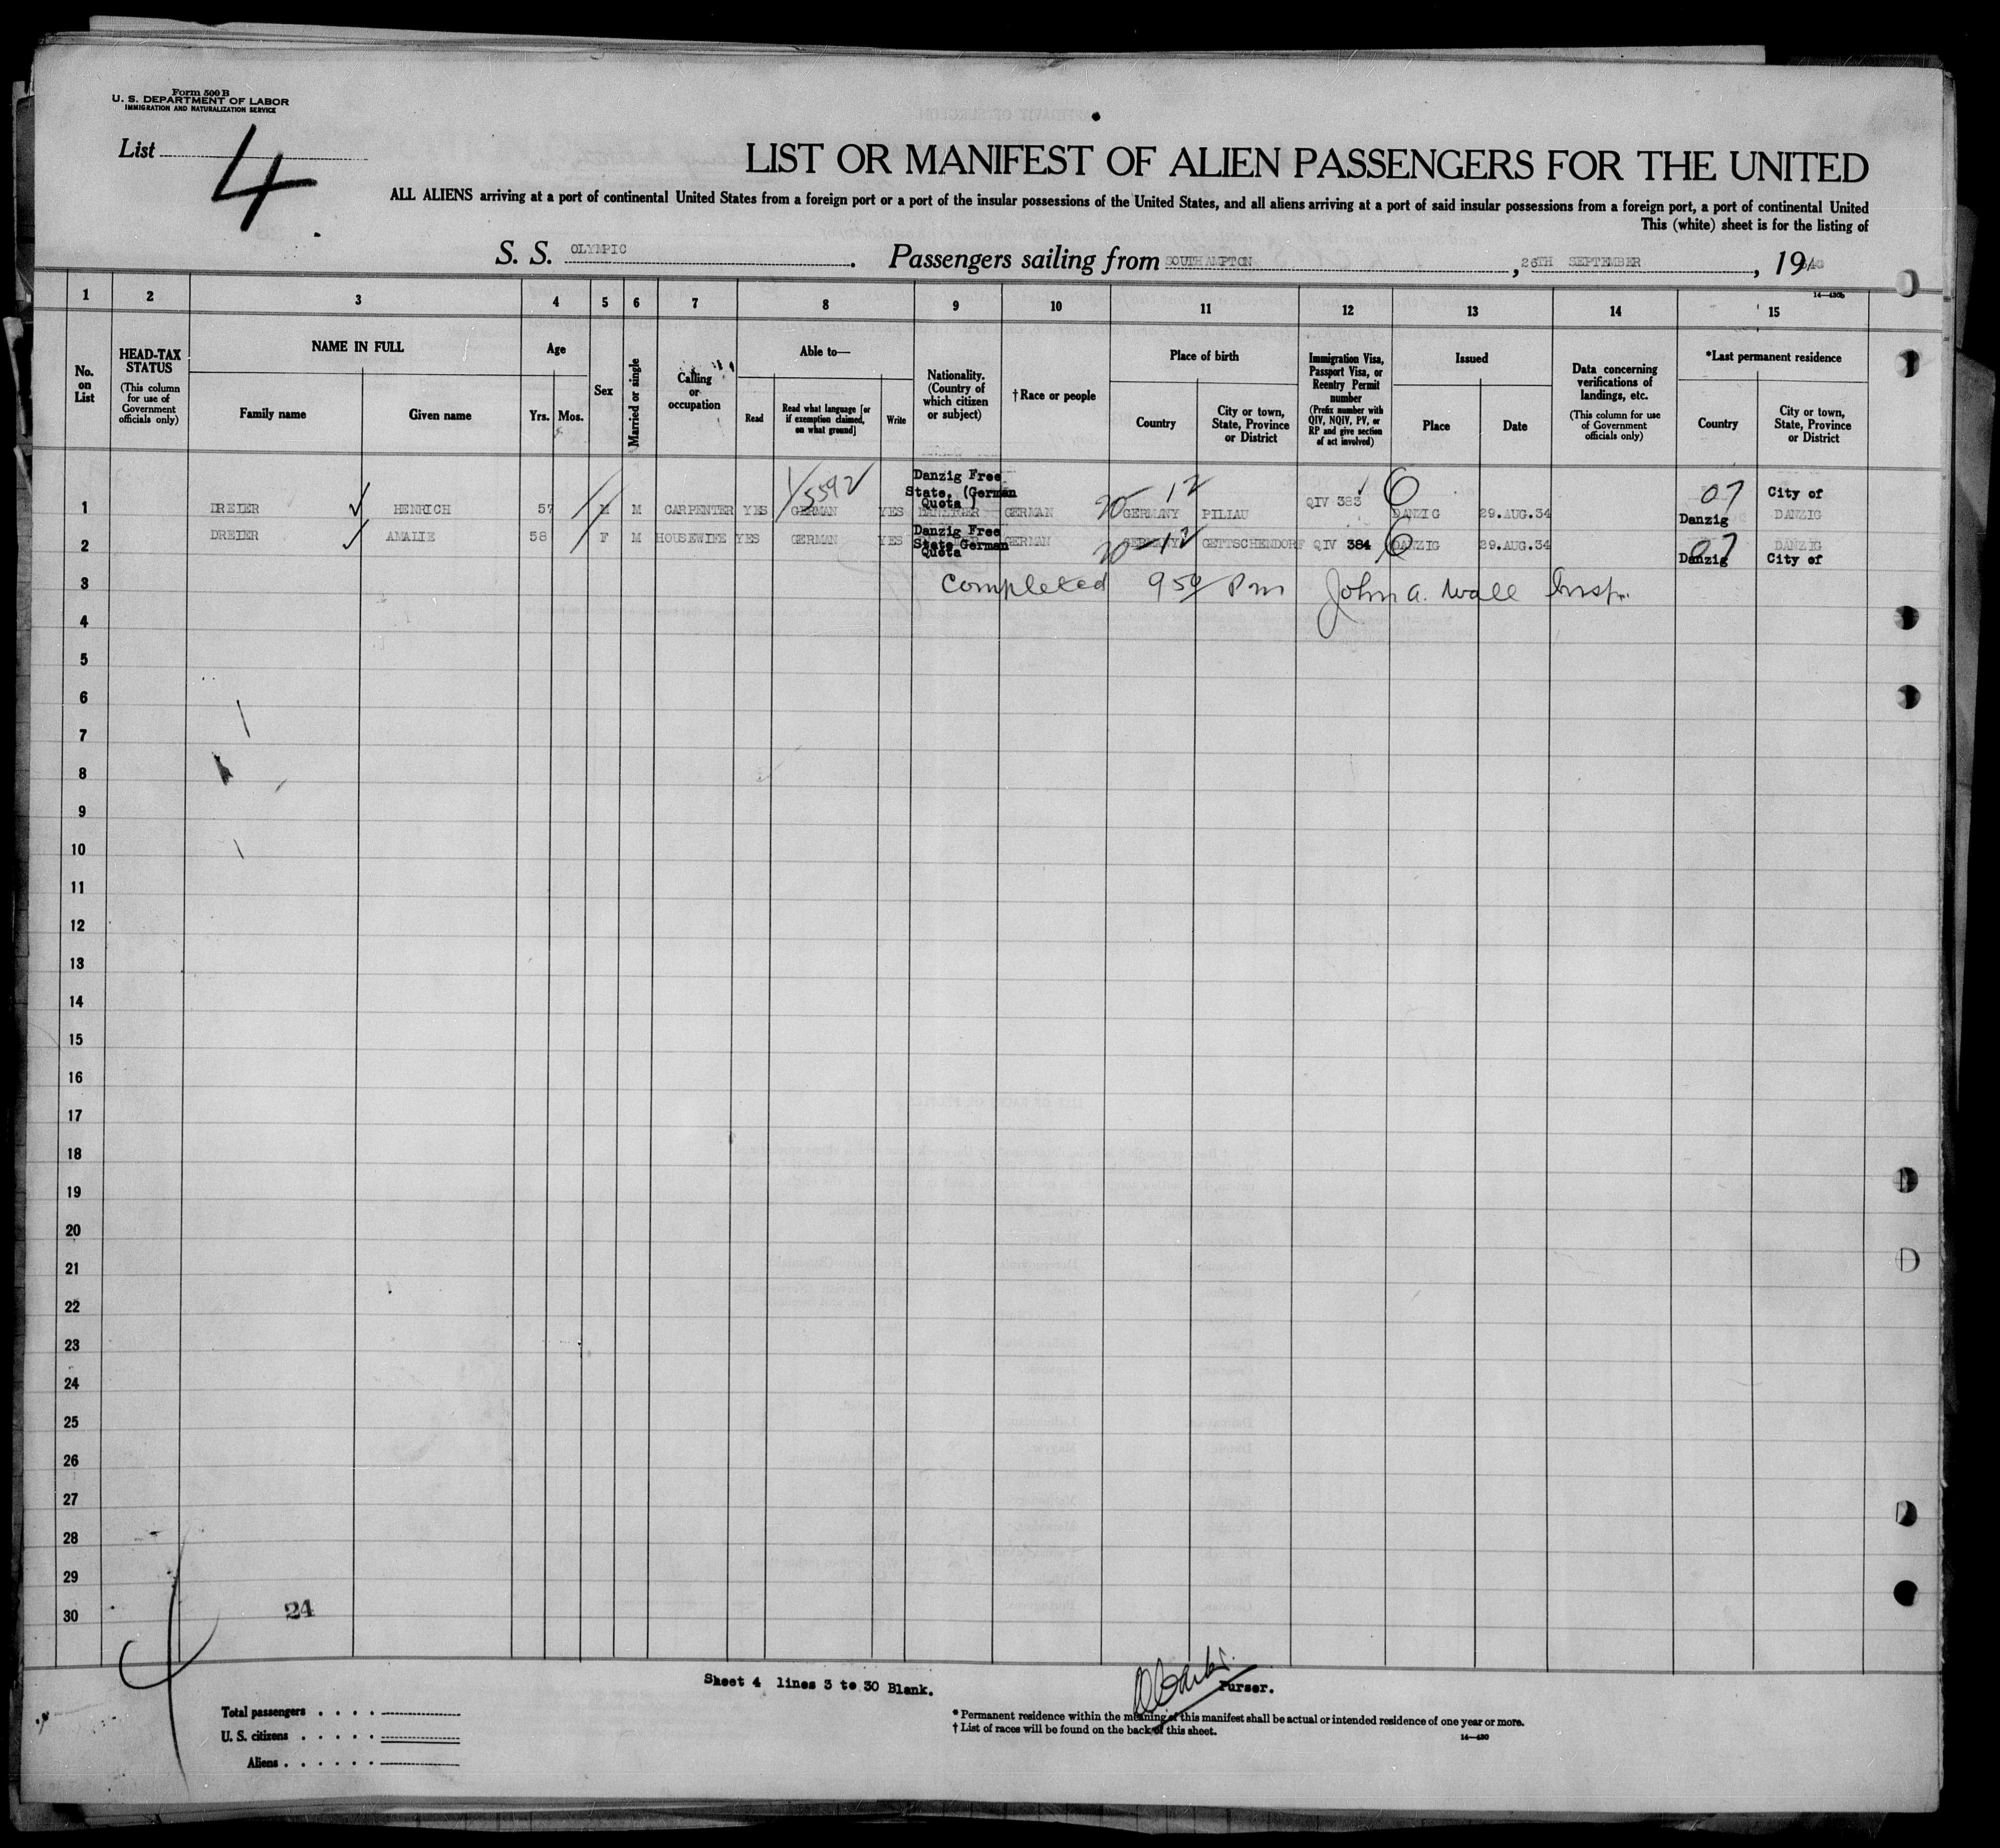 Form 500 B
U. S. DEPARTMENT OF LABOR
IMMIGRATION AND NATURALIZATION SERVICE
List 4
LIST OR MANIFEST OF ALIEN PASSENGERS FOR THE UNITED
ALL ALIENS arriving at a port of continental United States from a foreign port or a port of the insular possessions of the United States, and all aliens arriving at a port of said insular possessions from a foreign port, a port of continental United
This (white) sheet is for the listing of
S. S. OLYMPIC. Passengers sailing from SOUTHAMPTON, 26TH SEPTEMBER, 19
14—430b
1 2 3 4 5 6 7 8 9 10 11 12 13 14 15
No. on List
HEAD-TAX STATUS (This column for use of Government officials only)
NAME IN FULL
Family name
Given name
Age
Yrs. Mos.
Sex
Married or single
Calling or occupation
Able to—
Read
Read what language [or if exemption claimed, on what ground]
Write
Nationality. (Country of which citizen or subject)
†Race or people
Place of birth
Country
City or town, State, Province or District
Immigration Visa, Passport Visa, or Reentry Permit number (Prefix number with QIV, NQIV, PV, or RP and give section of act involved)
Issued
Place
Date
Data concerning verifications of landings, etc. (This column for use of Government officials only)
*Last permanent residence
Country
City or town, State, Province or District
1/5592
Danzig Free State, (German Quota)
20-12
6
07
1 DREIER HENRICH 57 M M CARPENTER YES GERMAN YES DANZIGER GERMAN GERMANY PILIAU QIV 383 DANZIG 29.AUG.34 Danzig City of DANZIG
Danzig Free State German Quota
20-12
6
07
2 DREIER AMALIE 58 F M HOUSEWIFE YES GERMAN YES GERMAN GERMANY GETTSCHENDORF QIV 384 DANZIG 29.AUG.34 Danzig DANZIG City of
3 Completed 9 50 Pm John A. Wall Insp.
4
5
6
7
8
9
10
11
12
13
14
15
16
17
18
19
20
21
22
23
24
25
26
27
28
29
30
24
Sheet 4 lines 3 to 30 Blank.
Purser.
Total passengers
U. S. citizens
Aliens
* Permanent residence within the meaning of this manifest shall be actual or intended residence of one year or more.
† List of races will be found on the back of this sheet.
14—430